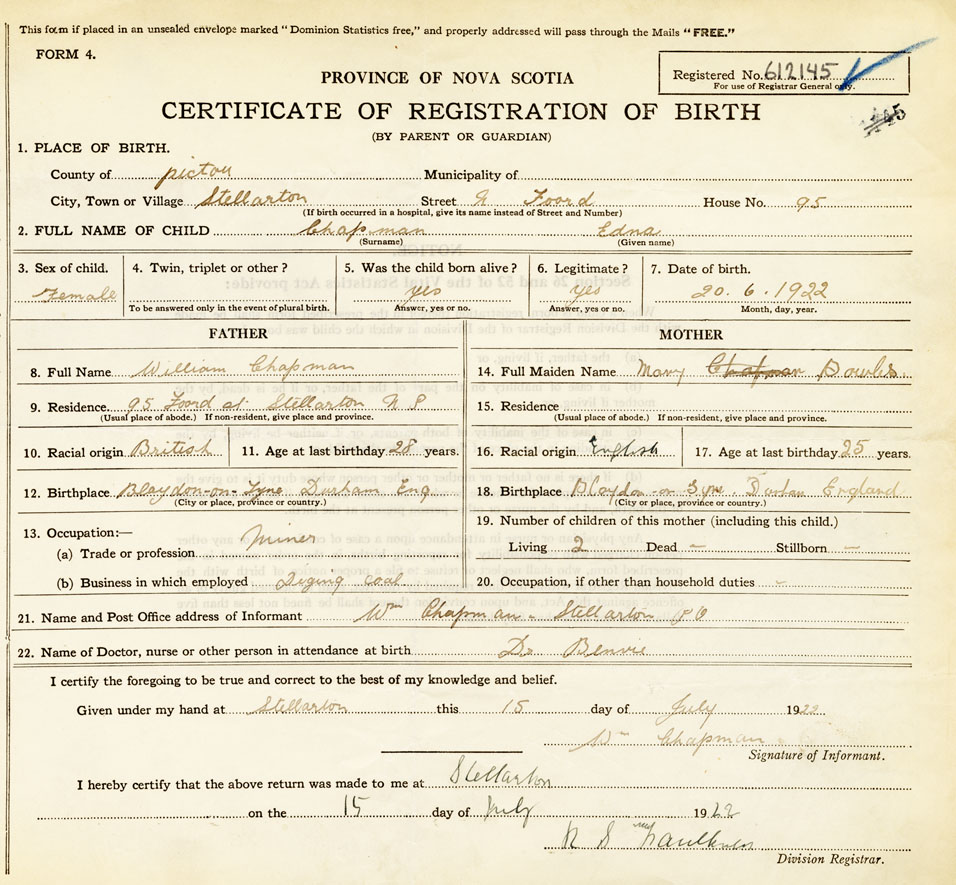 This form if placed in an unsealed envelope marked "Dominion Statistics free," and properly addressed will pass through the Mails "FREE."
FORM 4.
Registered No. 612145
For use of Registrar General only.
PROVINCE OF NOVA SCOTIA
CERTIFICATE OF REGISTRATION OF BIRTH
(BY PARENT OR GUARDIAN)
1. PLACE OF BIRTH.
County of pictou Municipality of
City, Town or Village Stellarton Street Foord House No. 95
(If birth occurred in a hospital, give its name instead of Street and Number)
2. FULL NAME OF CHILD Chapman Edna
(Surname) (Given name)
3. Sex of child. 4. Twin, triplet or other? 5. Was the child born alive? 6. Legitimate? 7. Date of birth.
Female yes yes 20.6.1922
To be answered only in the event of plural birth. Answer, yes or no. Answer, yes or no. Month, day, year.
FATHER MOTHER
8. Full Name William Chapman 14. Full Maiden Name Mary Chapman
9. Residence 95 Foord st Stellarton N S 15. Residence
(Usual place of abode.) If non-resident, give place and province. (Usual place of abode.) If non-resident, give place and province.
10. Racial origin British 11. Age at last birthday 28 years. 16. Racial origin English 17. Age at last birthday 25 years.
12. Birthplace Blaydon-on-Tyne Durham Eng 18. Birthplace Blaydon-on Tyne. Durham England
(City or place, province or country.) (City or place, province or country.)
13. Occupation:— 19. Number of children of this mother (including this child.)
(a) Trade or profession miner Living 2 Dead – Stillborn –
(b) Business in which employed Diging coal 20. Occupation, if other than household duties -
21. Name and Post Office address of Informant Wm Chapman. Stellarton PO
22. Name of Doctor, nurse or other person in attendance at birth Dr Benvie
I certify the foregoing to be true and correct to the best of my knowledge and belief.
Given under my hand at Stellarton this 15 day of July 1922
Wm Chapman
Signature of Informant.
I hereby certify that the above return was made to me at Stellarton
on the 15 day of July 1922
Division Registrar.